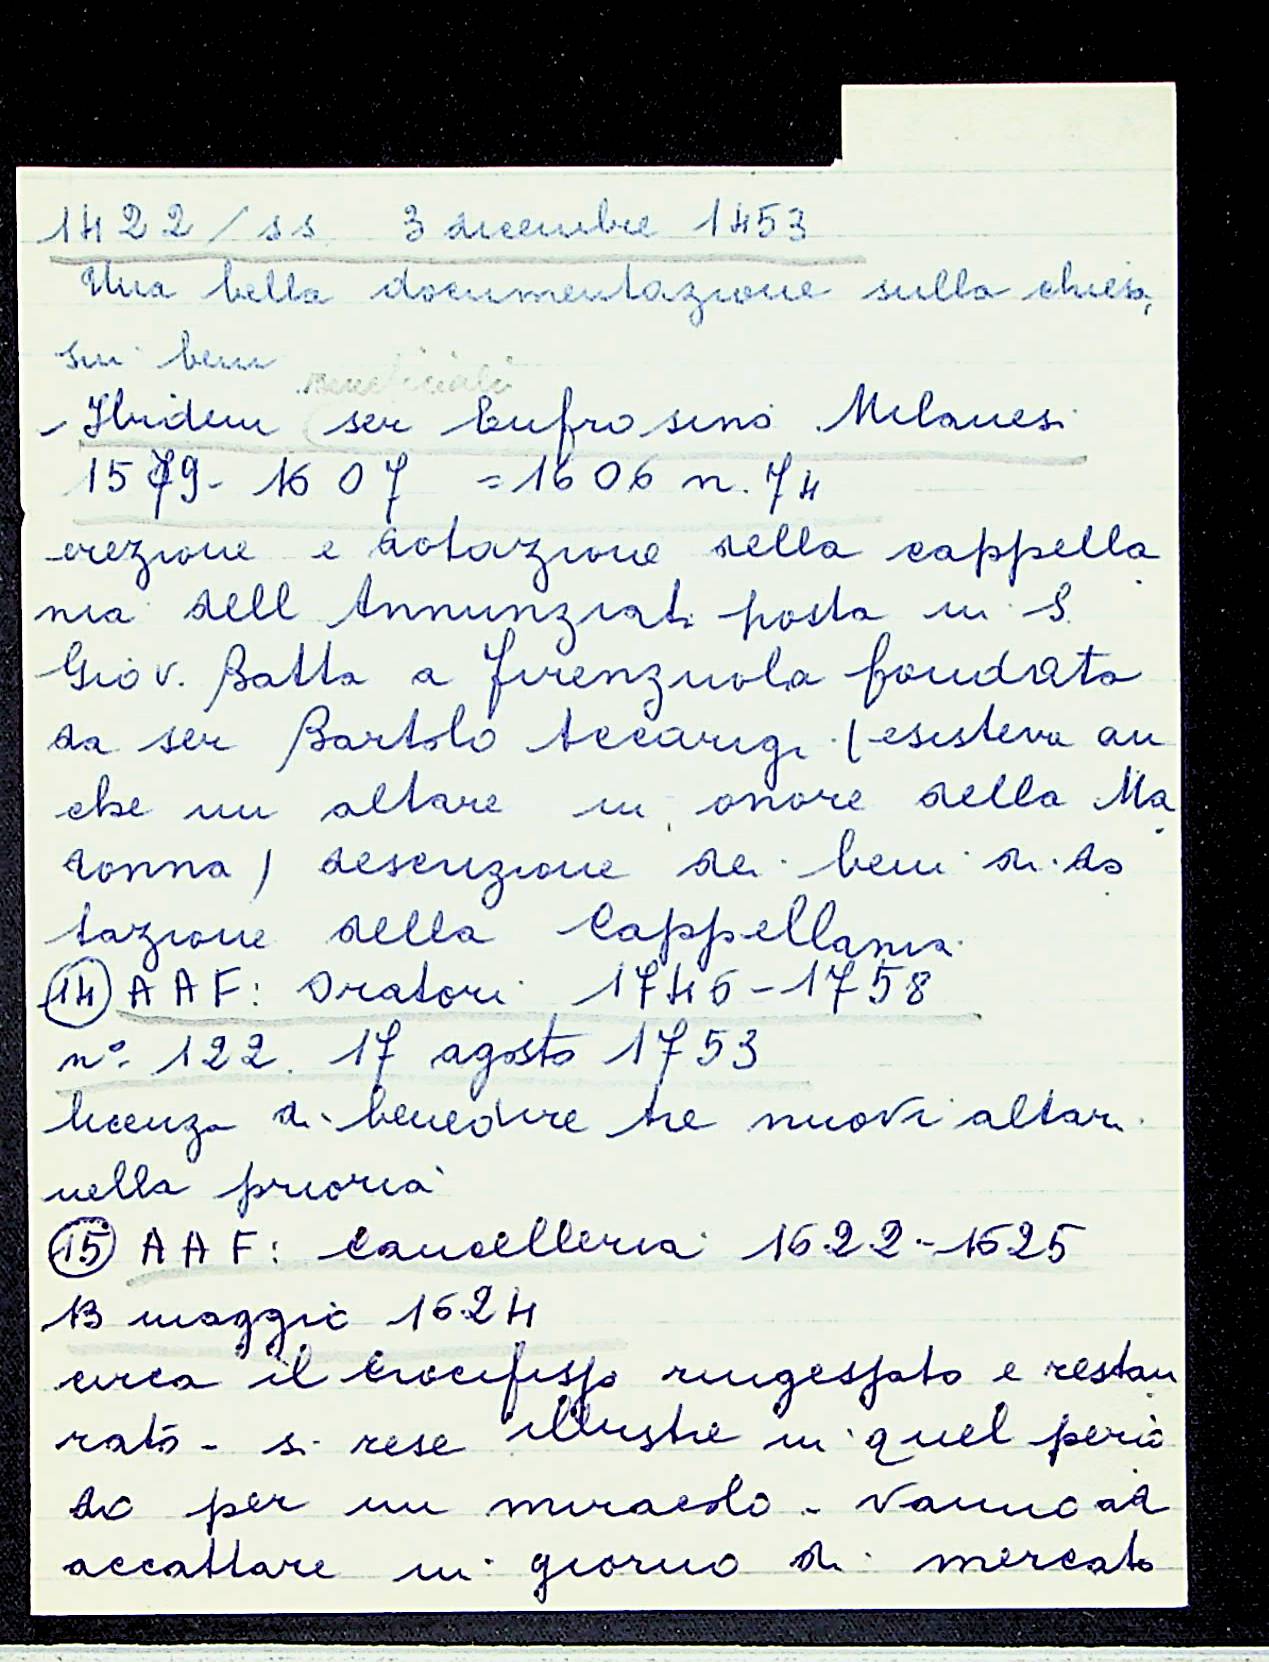 1422/ss 3 dicembre 1453
Una bella documentazione sulla chiesa,
sui beni
Beneficiali
- Ibidem ser Eufrosino Milanesi
1579-1607 =1606 n. 74
erezione e dotazione della cappella
nia dell Annunziata posta in S.
Giov. Batta a Firenzuola fondata
da ser Bartolo Accarigi (esisteva an
che un altare in onore della Ma
donna) descrizione dei beni di do
tazione della Cappellania.
(14) AAF: Oratori 1746-1758
n° 122. 17 agosto 1753
licenza di benedire tre nuovi altari
nella prioria
(15) AAF: Cancelleria 1622-1625
13 maggio 1624
circa il Crocifisso ringessato e restau
rato - si rese illustre in quel perio
do per un miracolo - Vanno ad
accattare in giorno di mercato